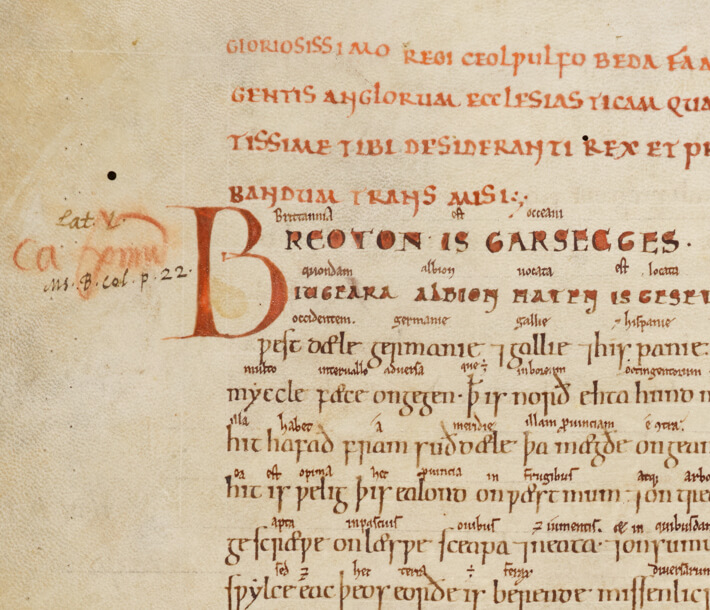 GLORIOSISSIMO REGI CEOLǷULFO BEDA FAM
GENTIS ANGLORUM ECCLESIASTICAM QUA
TISSIME TIBI DESIDERANTI REX ET PR
BANDUM TRANSMISI
Lat. 1.
Ms. B. Col. p. 22.
Brittannia est occeani
BREOTON IS GARSECGES.
quondam albion vocata est locata
IUGEARA ALBION HATEN IS GESET
occidentem. germanie gallie hispanie
ƿest dæle germanie ⁊ gallie ⁊ hispanie
multo intervallo adversa que in boream octingentorum
myccle fæce ongegen. þ is norð ehta hund m
illa habet a meridie illam provinciam
hit hafað fram suðdæle þa mægðe ongean
est opima hec provincia in frugibus atque arbo
hit is ƿelig þis ealond on ƿæstmum ⁊ on treo
apta in pascuis ovibus ⁊ iumentis. & in quibusdam
gescræpe on læsƿe sceapa ⁊ neata. ⁊ on sumu
sed ⁊ hec terra ferax diversarum
sƿylce eac þeos eorðe is berende missenlicr